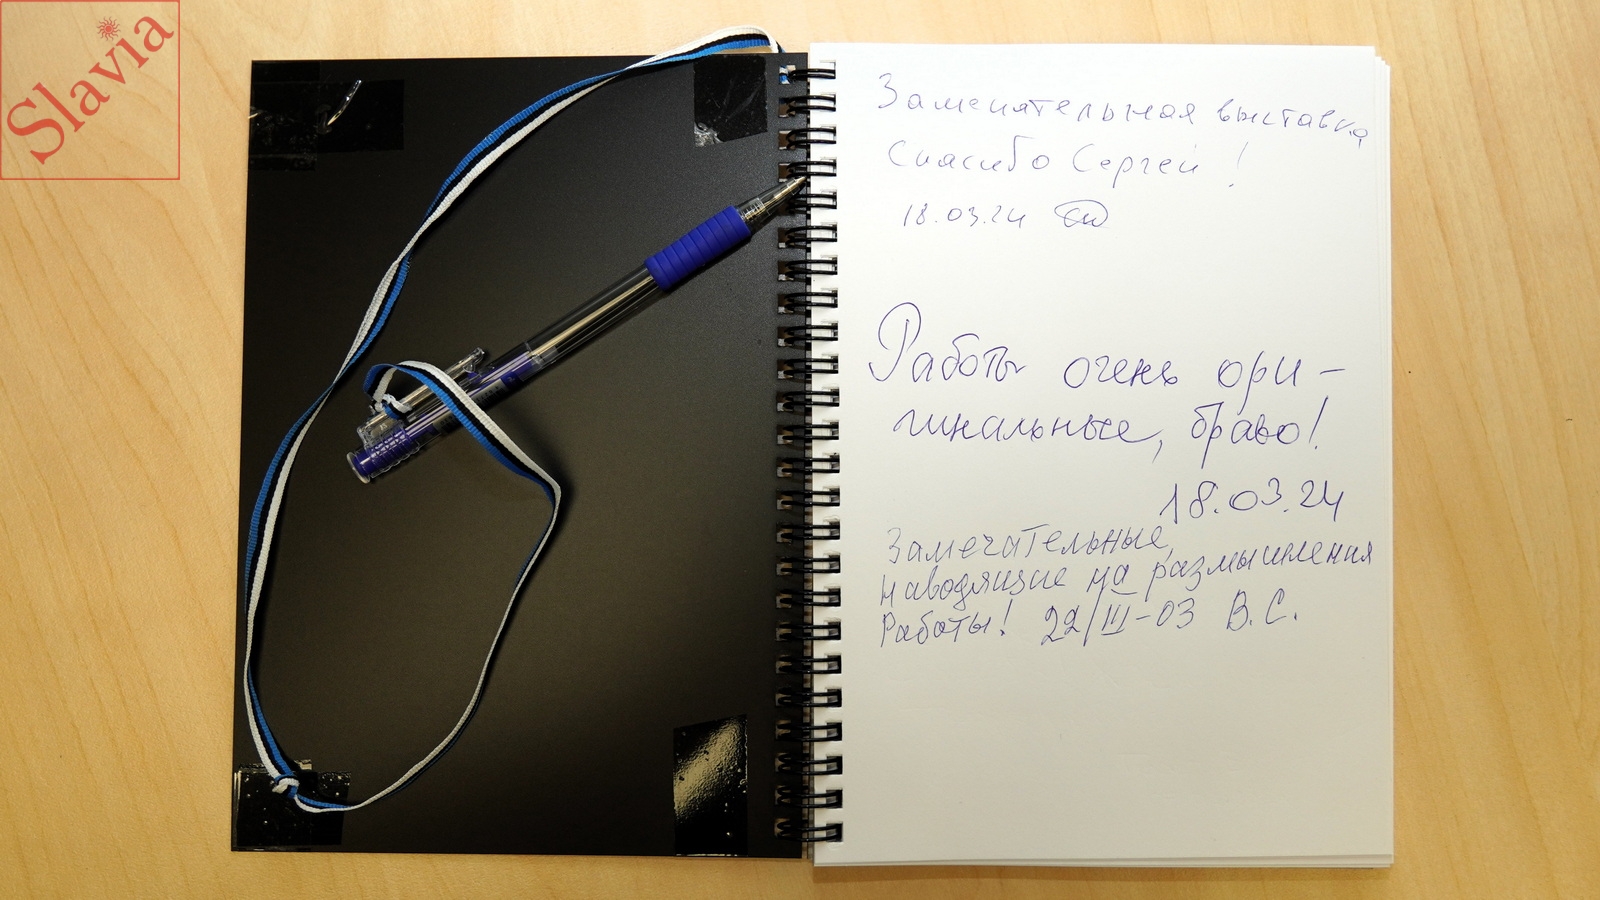 Slavia
Замечательная выставка,
Спасибо Сергей!
18.03.24
Работы очень ори-
гинальные, браво!
18.03.24
Замечательные,
наводящие на размышления
Работы! 22/III-03 В.С.